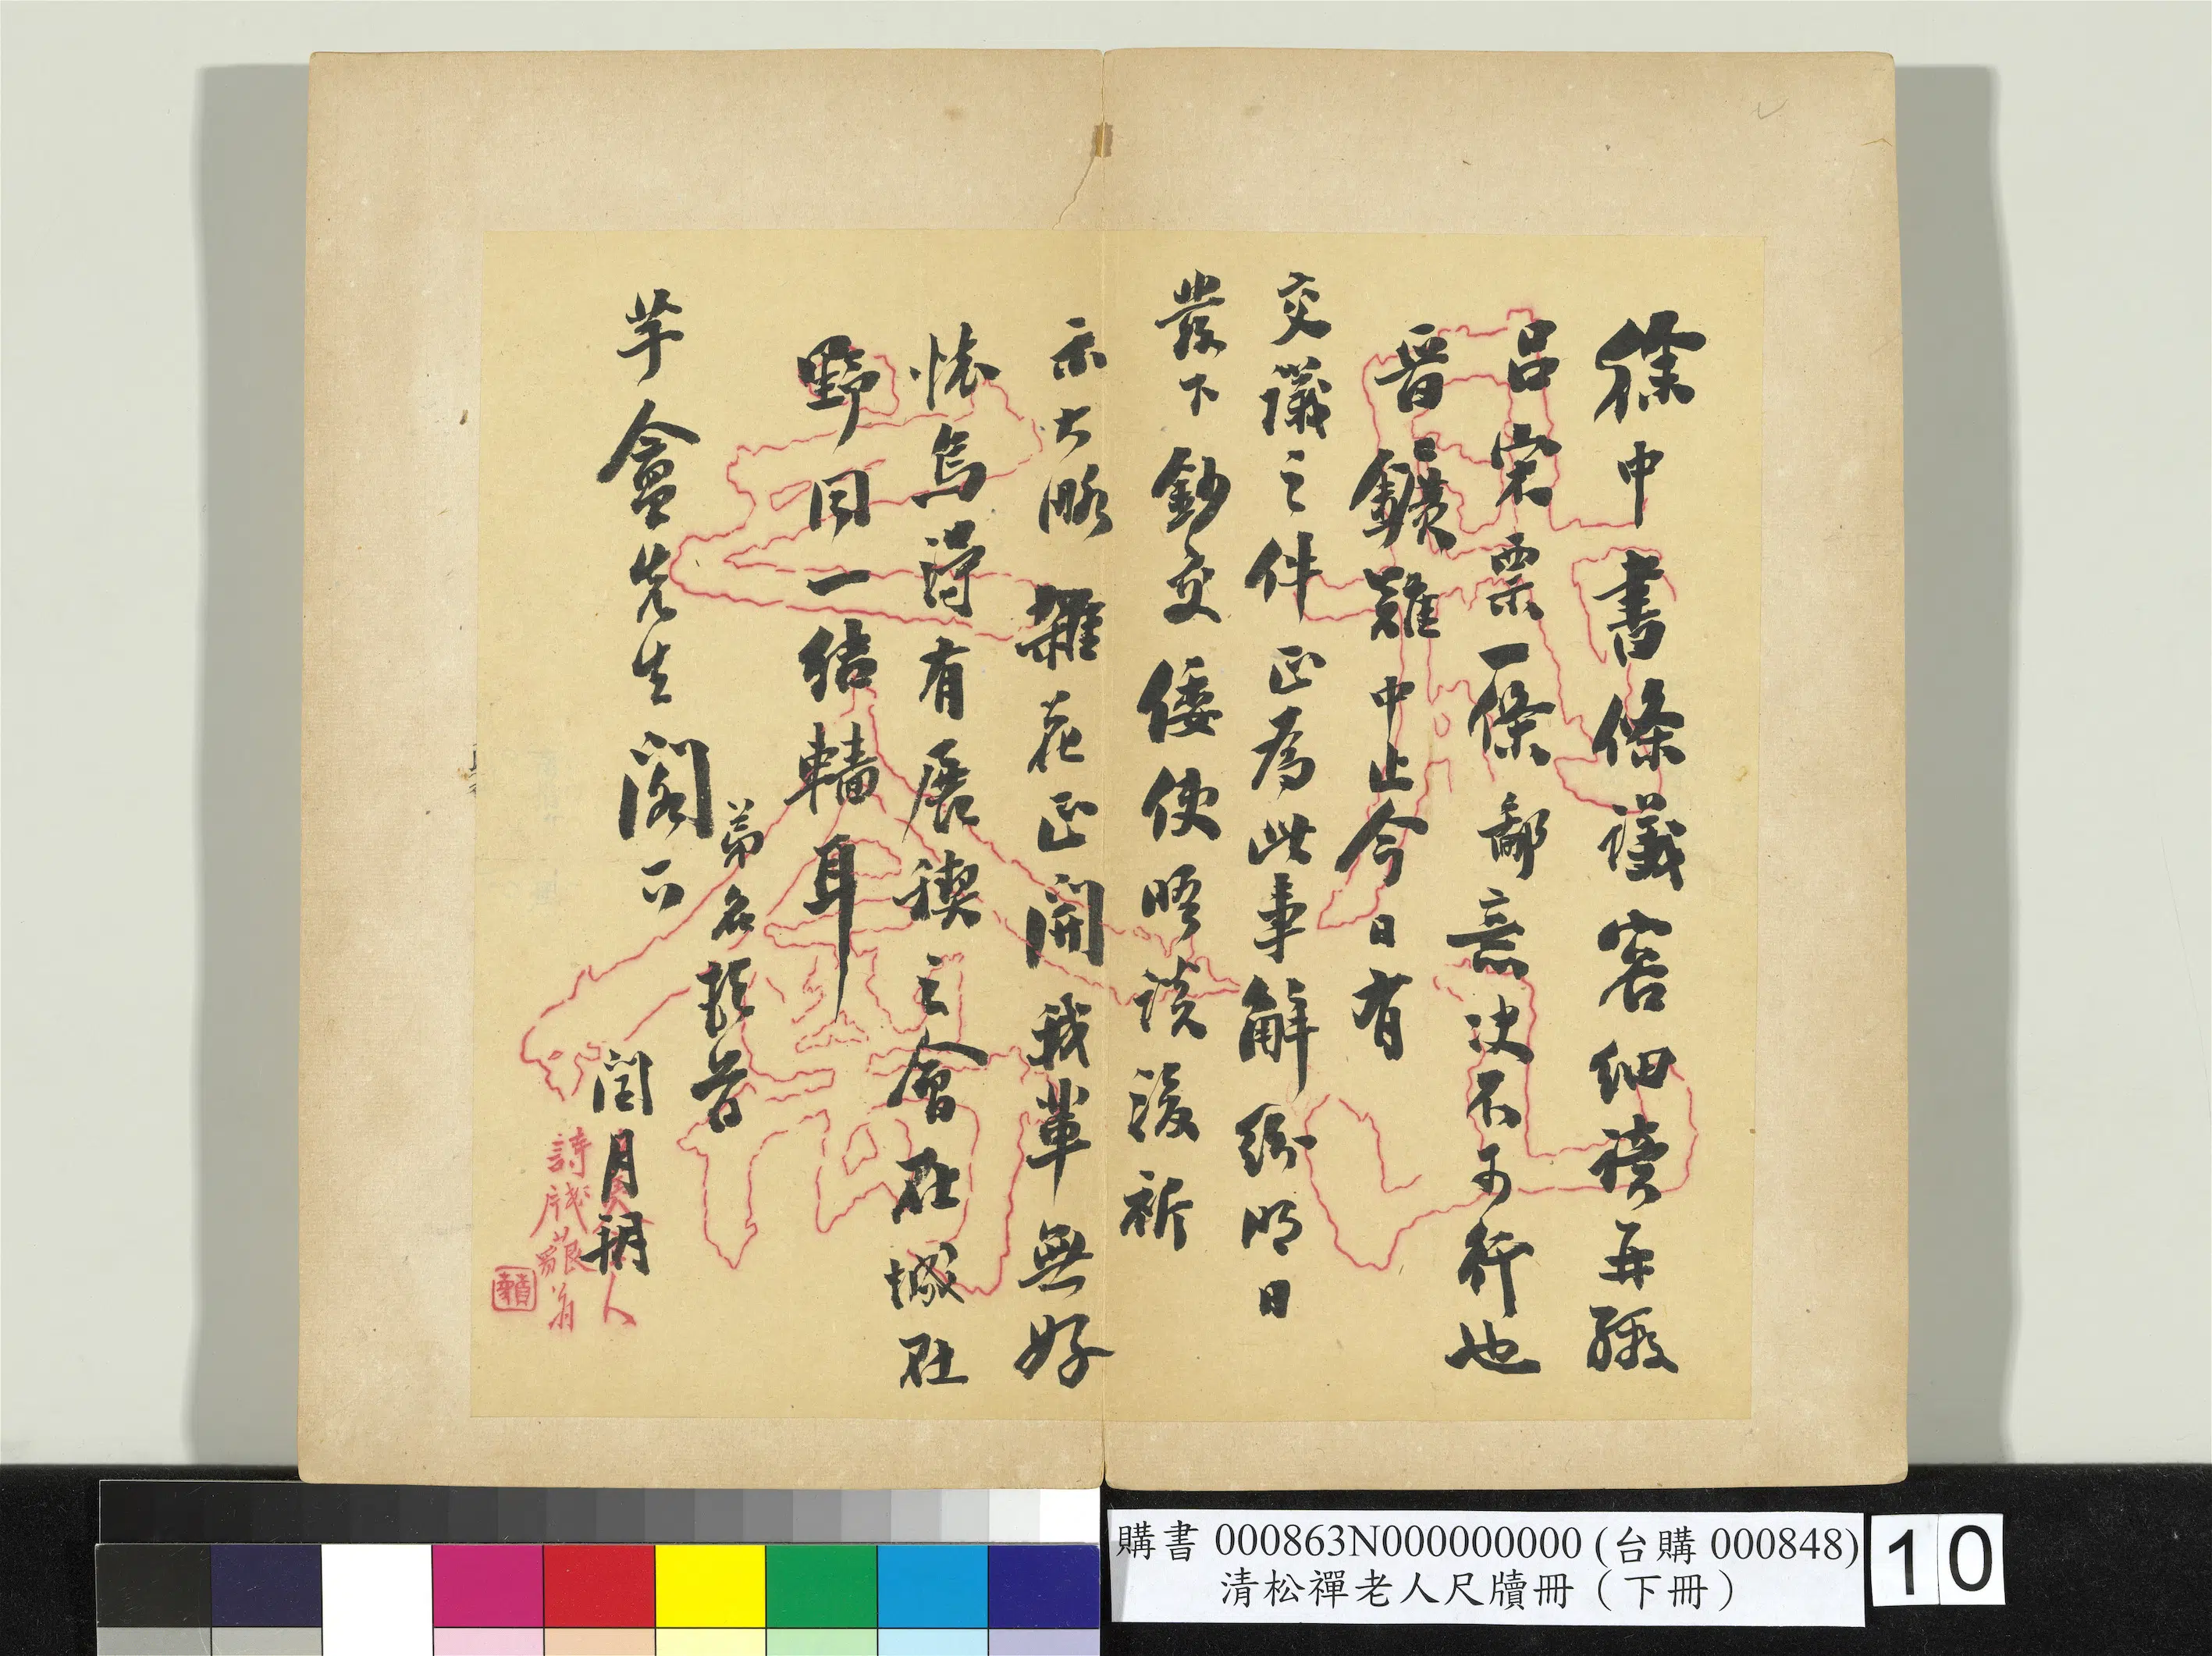 徐中書條議容細讀再繳
呂宋票一條鄙意決不可行也
晉〻鑛難中止今日有
交議之件正為此事解紛明日
發下鈔交倭使晤談後祈
示大略雜花正開我輩無好
懷烏得有展禊之會在城在
野同一結轖耳
弟名頓首
芋盦先生閣下
閏月朔
詩牋
翁
購書 000863N000000000 (台購 000848)
清松禪老人尺牘冊（下冊）
10